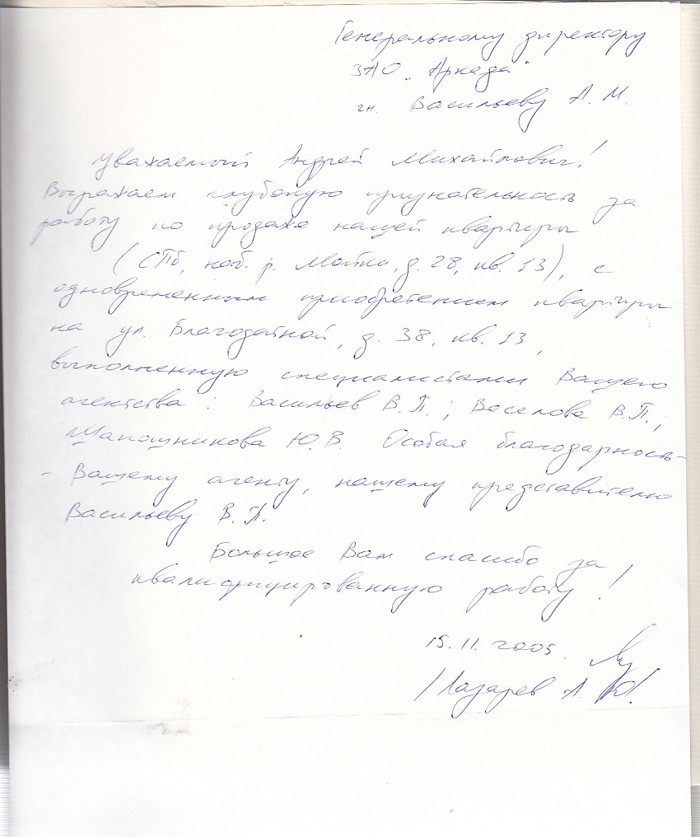 Генеральному директору
ЗАО "Аркада"
гн. Васильеву А. М.
Уважаемый Андрей Михайлович!
Выражаем глубокую признательность за
работу по продаже нашей квартиры
(СПб, наб. р. Мойки, д. 28, кв. 13), с
одновременным приобретением квартиры
на ул. Благодатной, д. 38, кв. 13,
выполненную специалистами Вашего
агентства: Васильев В.П.; Веселова В.П.;
Шапошникова Ю.В. Особая благодарность-
- Вашему агенту, нашему представителю
Васильеву В.П.
Большое Вам спасибо за
квалифицированную работу!
15.11.2005.
/Лазарев А.